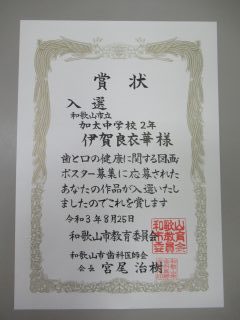 賞状
入選
和歌山市立
加太中学校2年
伊賀良衣華様
歯と口の健康に関する図画
ポスター募集に応募された
あなたの作品が入選いたし
ましたのでこれを賞します
令和3年8月25日
和歌山市教育委員会
和歌山市歯科医師会
会長 宮尾治樹